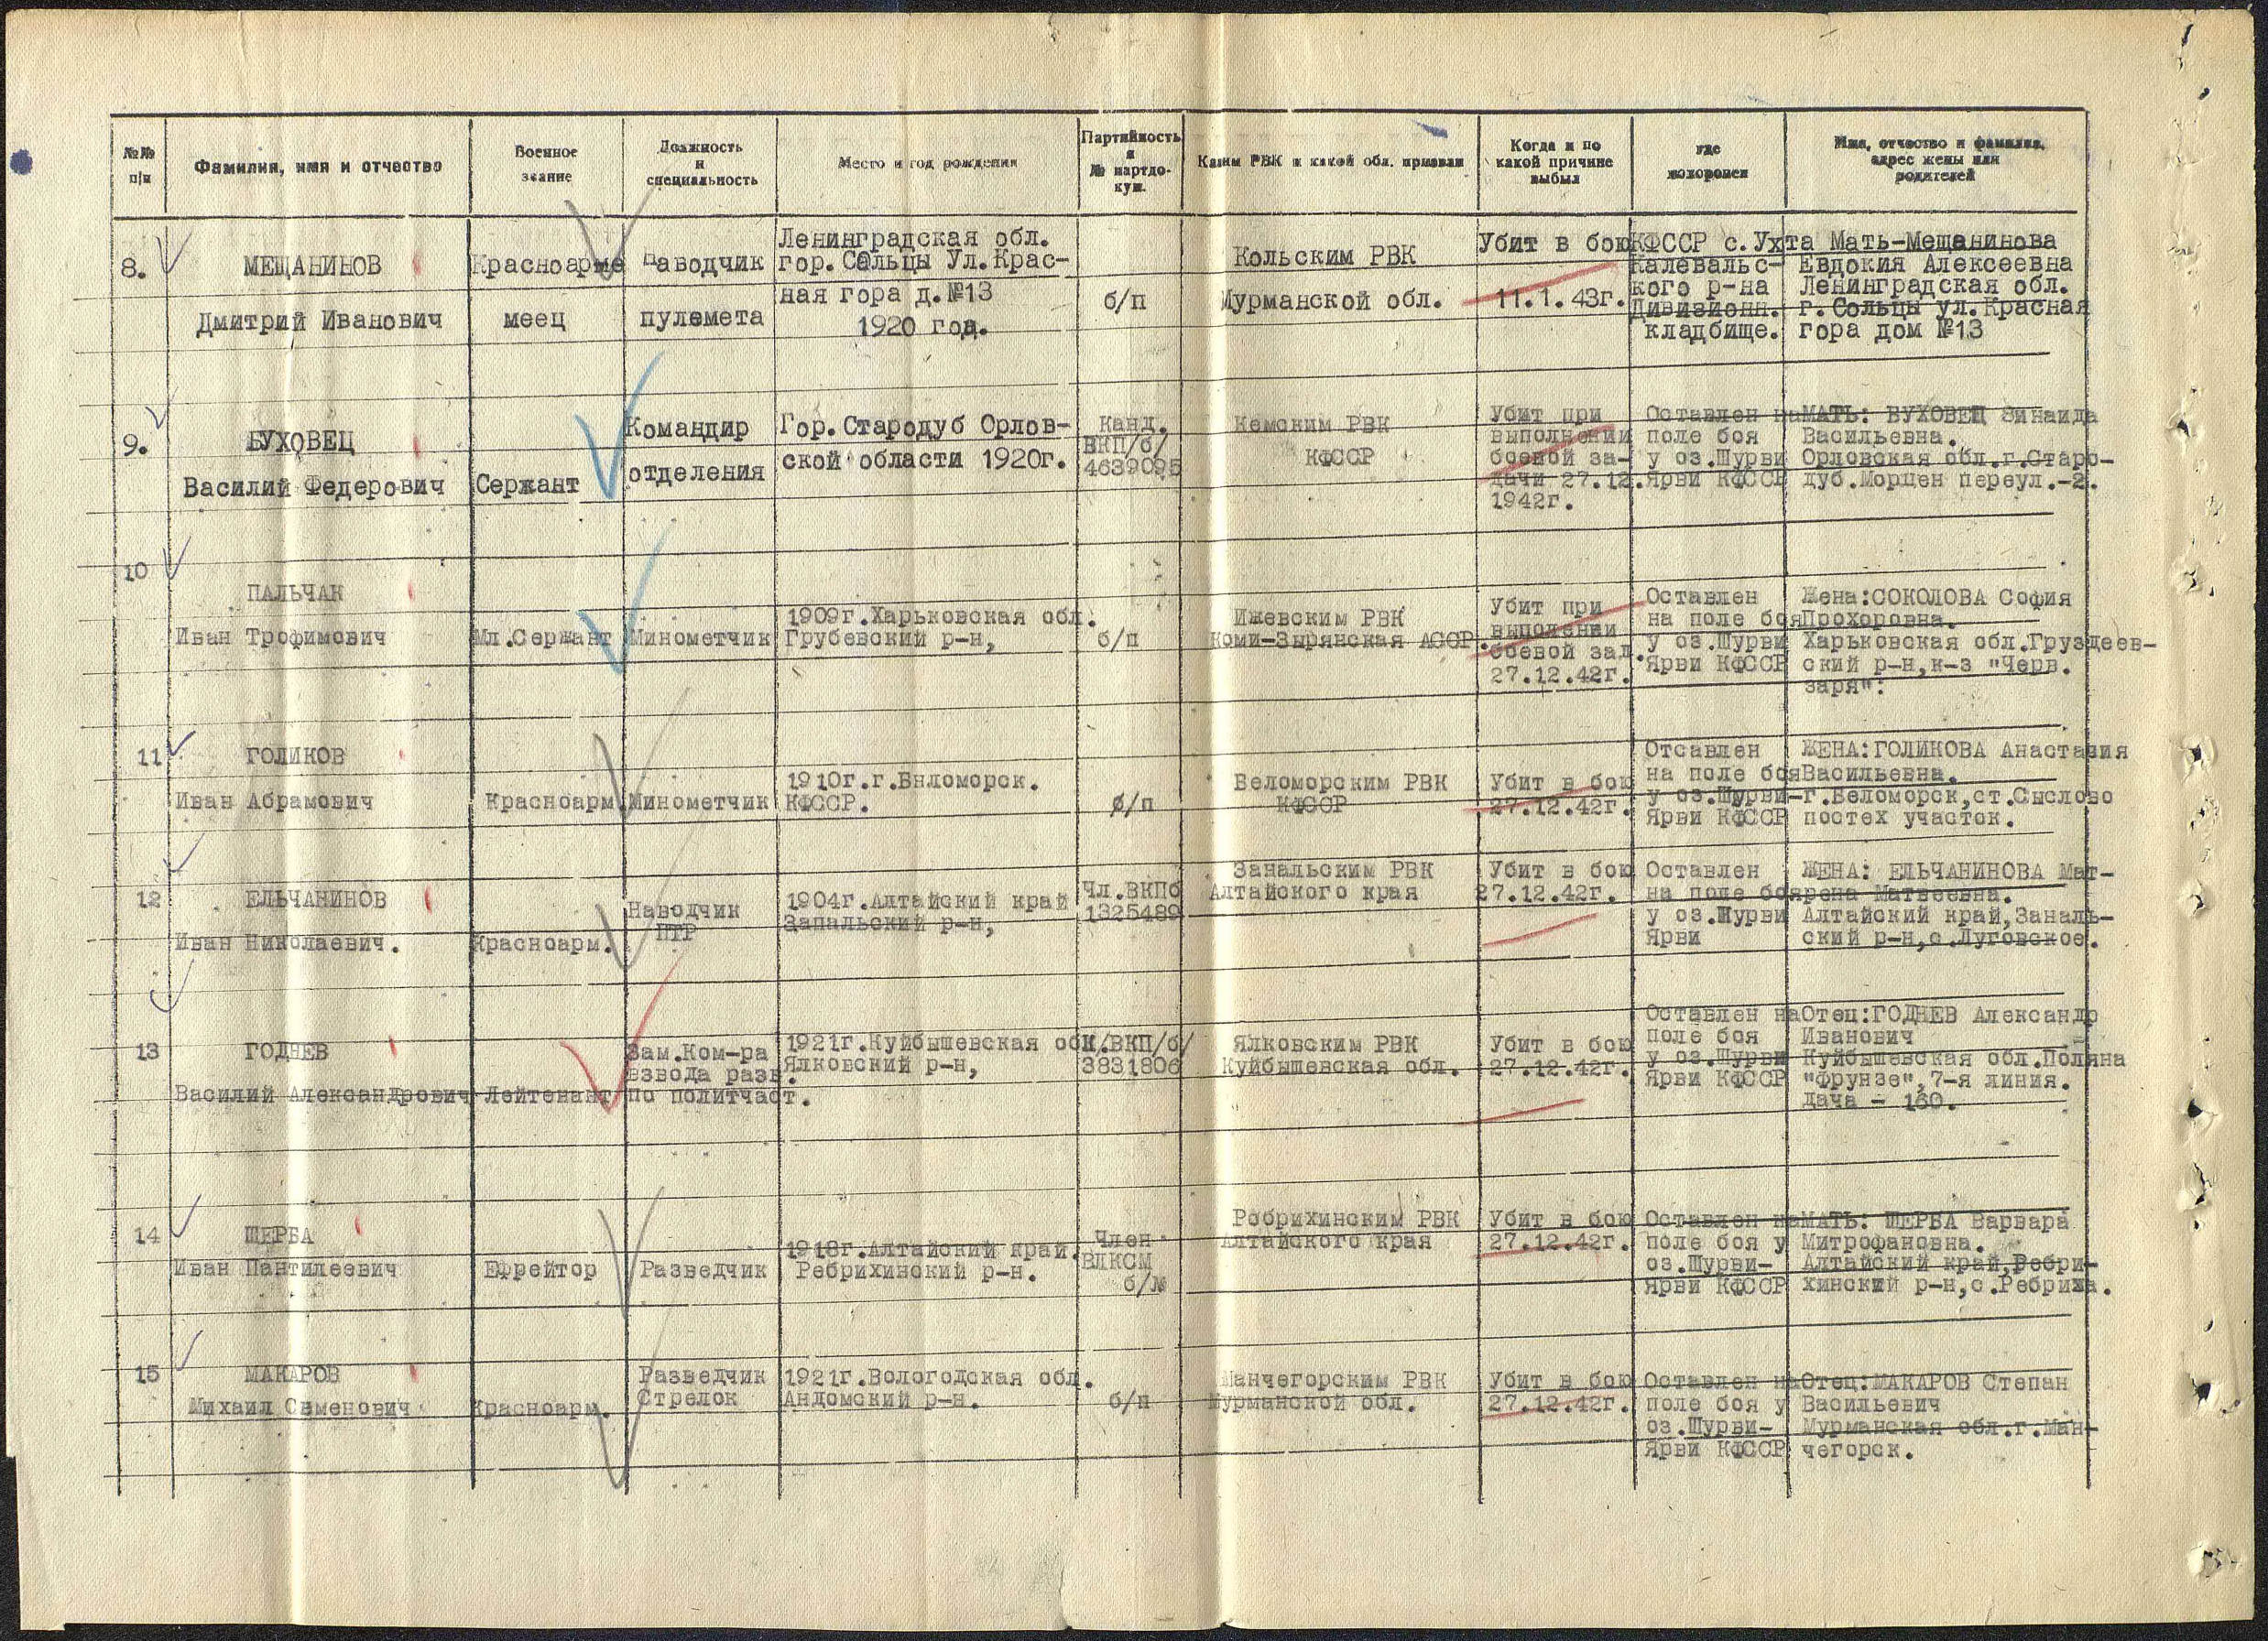 №№ п/п
Фамилия, имя и отчество
Военное звание
Должность и специальность
Место и год рождения
Партийность и № партдокум.
Каким РВК и какой обл. призван
Когда и по какой причине выбыл
где похоронен
Имя, отчество и фамилия, адрес жены или родителей
8.
МЕЩАНИНОВ
Дмитрий Иванович
Красноарме
меец
наводчик
пулемета
Ленинградская обл.
гор. Сольцы Ул. Крас-
ная гора д.№13
1920 год.
б/п
Кольским РВК
Мурманской обл.
Убит в бою
11.1.43г.
КФССР с.Ухта
Калевальс-
кого р-на
Дивизионн.
кладбище.
Мать-Мещанинова
Евдокия Алексеевна
Ленинградская обл.
г.Сольцы ул.Красная
гора дом №13
9.
БУХОВЕЦ
Василий Федерович
Сержант
Командир
отделения
Гор.Стародуб Орлов-
ской области 1920г.
Канд.
ВКП/б/
4639095
Кемским РВК
КФССР
Убит при
выполнении
боевой за-
дачи 27.12.
1942г.
Оставлен на
поле боя
у оз.Шурви
Ярви КФССР
МАТЬ: БУХОВЕЦ Зинаида
Васильевна.
Орловская обл.г.Старо-
дуб.Морцен переул.-2.
10
ПАЛЬЧАК
Иван Трофимович
Мл.Сержант
Минометчик
1909г.Харьковская обл.
Грубевский р-н,
б/п
Ижевским РВК
Коми-Зырянская АССР.
Убит при
выполении
боевой зад.
27.12.42г.
Оставлен
на поле боя
у оз.Шурви
Ярви КФССР
Жена:СОКОЛОВА София
Прохоровна.
Харьковская обл.Груздеев-
ский р-н,к-з "Черв.
заря".
11
ГОЛИКОВ
Иван Абрамович
Красноарм
Минометчик
1910г.г.Бяломорск.
КФССР.
б/п
Беломорским РВК
КФССР
Убит в бою
27.12.42г.
Отсавлен
на поле боя
у оз.Шурви-
Ярви КФССР
ЖЕНА:ГОЛИКОВА Анастазия
Васильевна.
г.Беломорск,ст.Сыслово
постех участок.
12
ЕЛЬЧАНИНОВ
Иван Николаевич.
Красноарм.
Наводчик
ПТР
1904г.Алтайский край
Запальский р-н,
Чл.ВКПб
1325489
Занальским РВК
Алтайского края
Убит в бою
27.12.42г.
Оставлен
на поле боя
у оз.Шурви
Ярви
ЖЕНА: ЕЛЬЧАНИНОВА Мат-
рена Матвеевна.
Алтайский край,Заналь-
ский р-н,с.Луговское.
13
ГОДНЕВ
Василий Александрович
Лейтенант
Зам.Ком-ра
взвода разв.
по политчаст.
1921г.Куйбышевская обл.
Ялковский р-н,
К/ВКП/б/
3831806
Ялковским РВК
Куйбышевская обл.
Убит в бою
27.12.42г.
Оставлен на
поле боя
у оз.Шурви
Ярви КФССР
Отец:ГОДНЕВ Александр
Иванович
Куйбышевская обл.Поляна
"Фрунзе",7-я линия.
Дача - 160.
14
ЩЕРБА
Иван Пантилеевич
Ефрейтор
Разведчик
1918г.Алтайский край.
Ребрихинский р-н.
Член
ВЛКСМ
б/№
Робрихинским РВК
Алтайского края
Убит в бою
27.12.42г.
Оставлен на
поле боя у
оз.Шурви-
Ярви КФССР
МАТЬ: ЩЕРБА Варвара
Митрофановна.
Алтайский край,Ребри-
хинский р-н,с.Ребриха.
15
МАКАРОВ
Михаил Сименович
Красноарм.
Разведчик
Стрелок
1921г.Вологодская обл.
Андомский р-н.
б/п
Манчегорским РВК
Мурманской обл.
Убит в бою
27.12.42г.
Оставлен на
поле боя у
оз.Шурви-
Ярви КФССР
Отец:МАКАРОВ Степан
Васильевич
Мурманская обл.г.Ман-
чегорск.